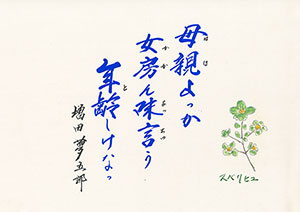 母親よっか
女房ん味言う
年齢しけなっ
増田 夢五郎
スベリヒユ